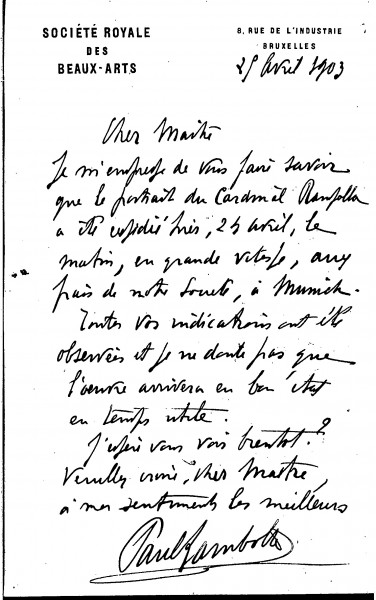 SOCIÉTÉ ROYALE
DES
BEAUX-ARTS
8, RUE DE L'INDUSTRIE
BRUXELLES
25 Avril 1903
Cher Maître
Je m'empresse de vous faire savoir
que le portrait du Cardinal Rampolla
a été expédié hier, 24 avril, le
matin, en grande vitesse, aux
frais de notre Société, à Munich.
Toutes vos indications ont été
observées et je ne doute pas que
l'œuvre arrivera en bon état
en temps utile.
J'espère vous voir bientôt?
Veuillez croire, cher Maître,
à mes sentiments les meilleurs
Paul Lambotte